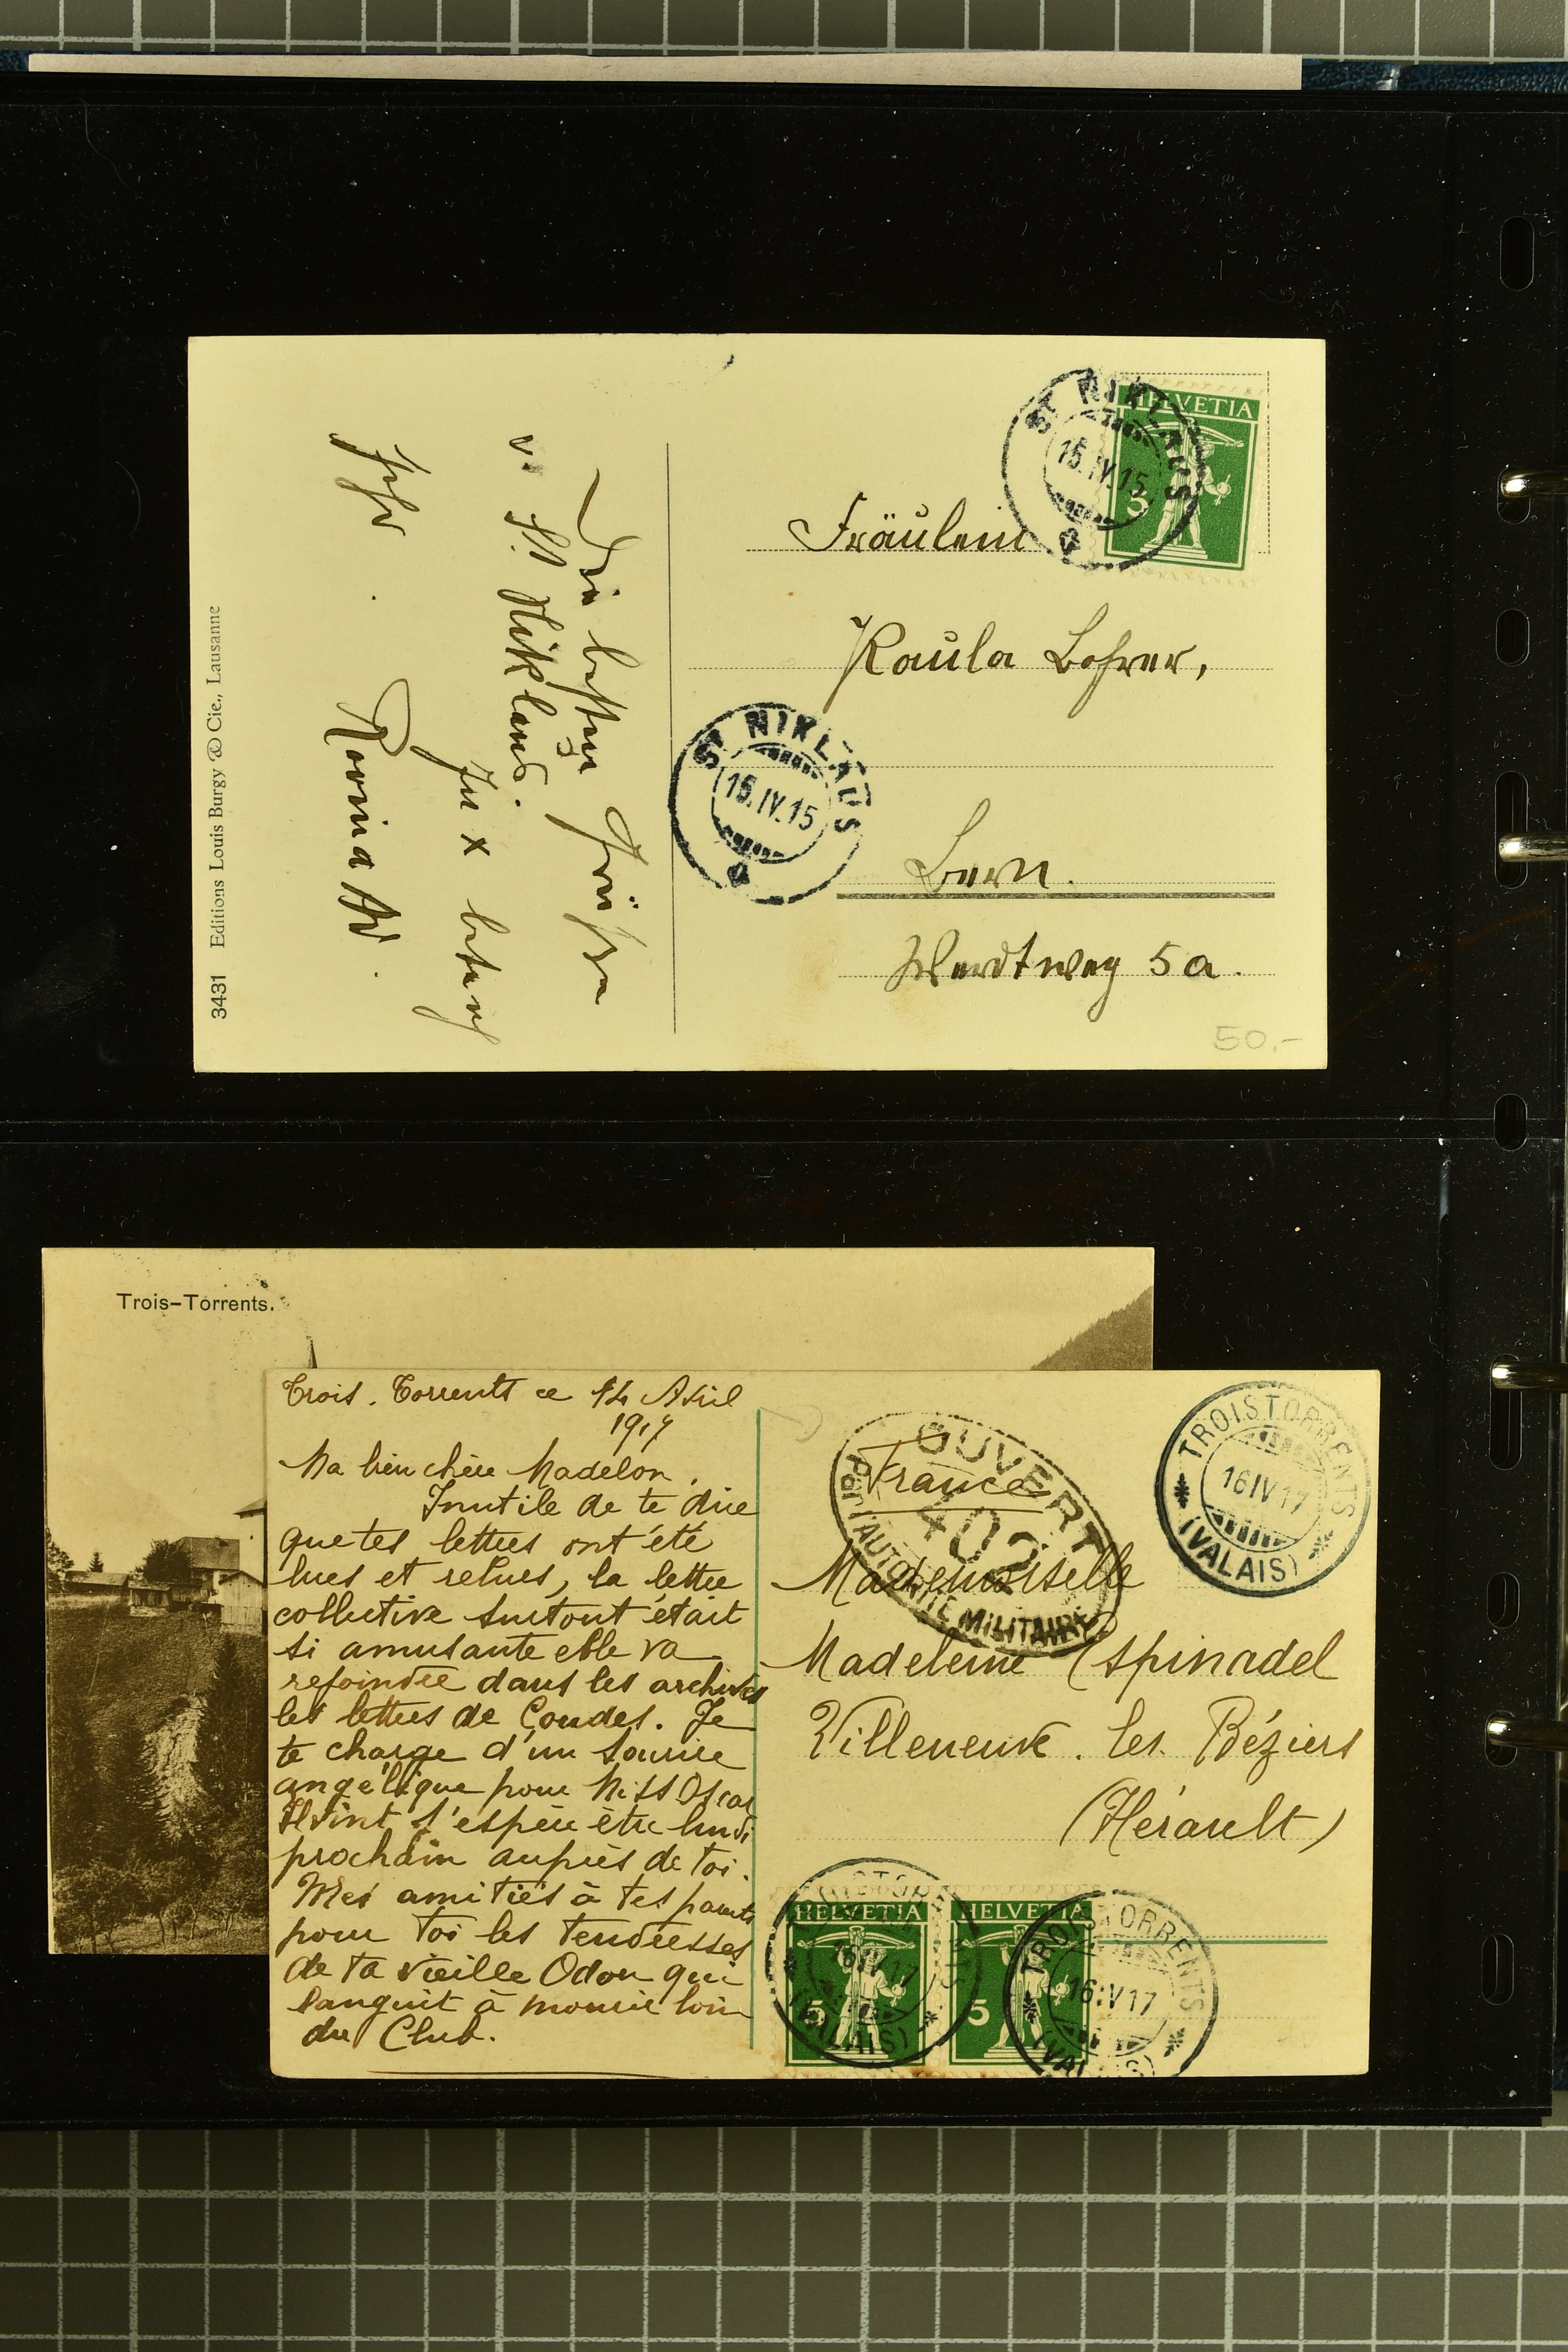 HELVETIA
5
ST. NIKLAUS
15.IV.15
Fräulein
Paula Lohrer,
ST. NIKLAUS
15.IV.15
Bern.
Werdtweg 5a.
50.-
Die besten Grüsse
v. St. Niklaus.
Ihr
3431 Editions Louis Burgy & Cie., Lausanne
Trois-Torrents.
Trois. Torrents ce 14 Avril
1917
Ma bien chère Madelon.
Inutile de te dire
que tes lettres ont été
lues et relues, la lettre
collective surtout était
si amusante elle va
rejoindre dans les archives
les lettres de Condes. Je
te charge d'un sourire
angélique pour Miss Oscar
j'espère être lundi
prochain auprès de toi.
Mes amitiés à tes parents
pour toi les tendresses
de ta vieille Odon qui
languit à mourir loin
du Club.
OUVERT
402
PAR L'AUTORITÉ MILITAIRE
TROISTORRENTS
16 IV 17
(VALAIS)
France
Mademoiselle
Madeleine Espinadel
Villeneuve. les. Béziers
(Hérault)
HELVETIA
5
HELVETIA
5
TROISTORRENTS
16 IV 17
(VALAIS)
TROISTORRENTS
16 IV 17
(VALAIS)